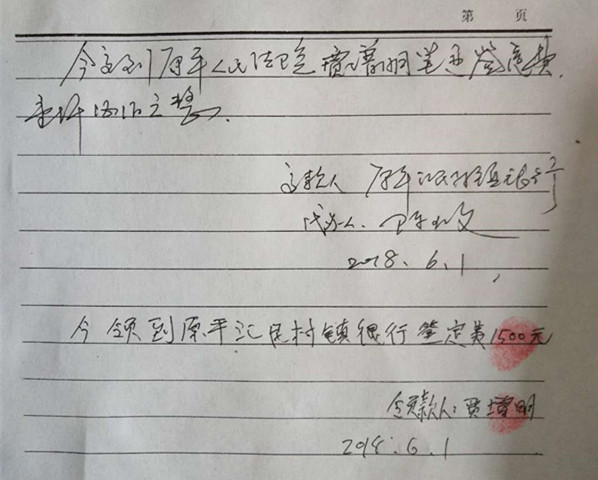 第 页
今交到原平人民法院贾增明笔迹鉴定费,
交款人 原平汇民村镇银行
代办人.
2018.6.1,
今领到原平汇民村镇银行鉴定费1500元
领款人:贾增明
2018.6.1